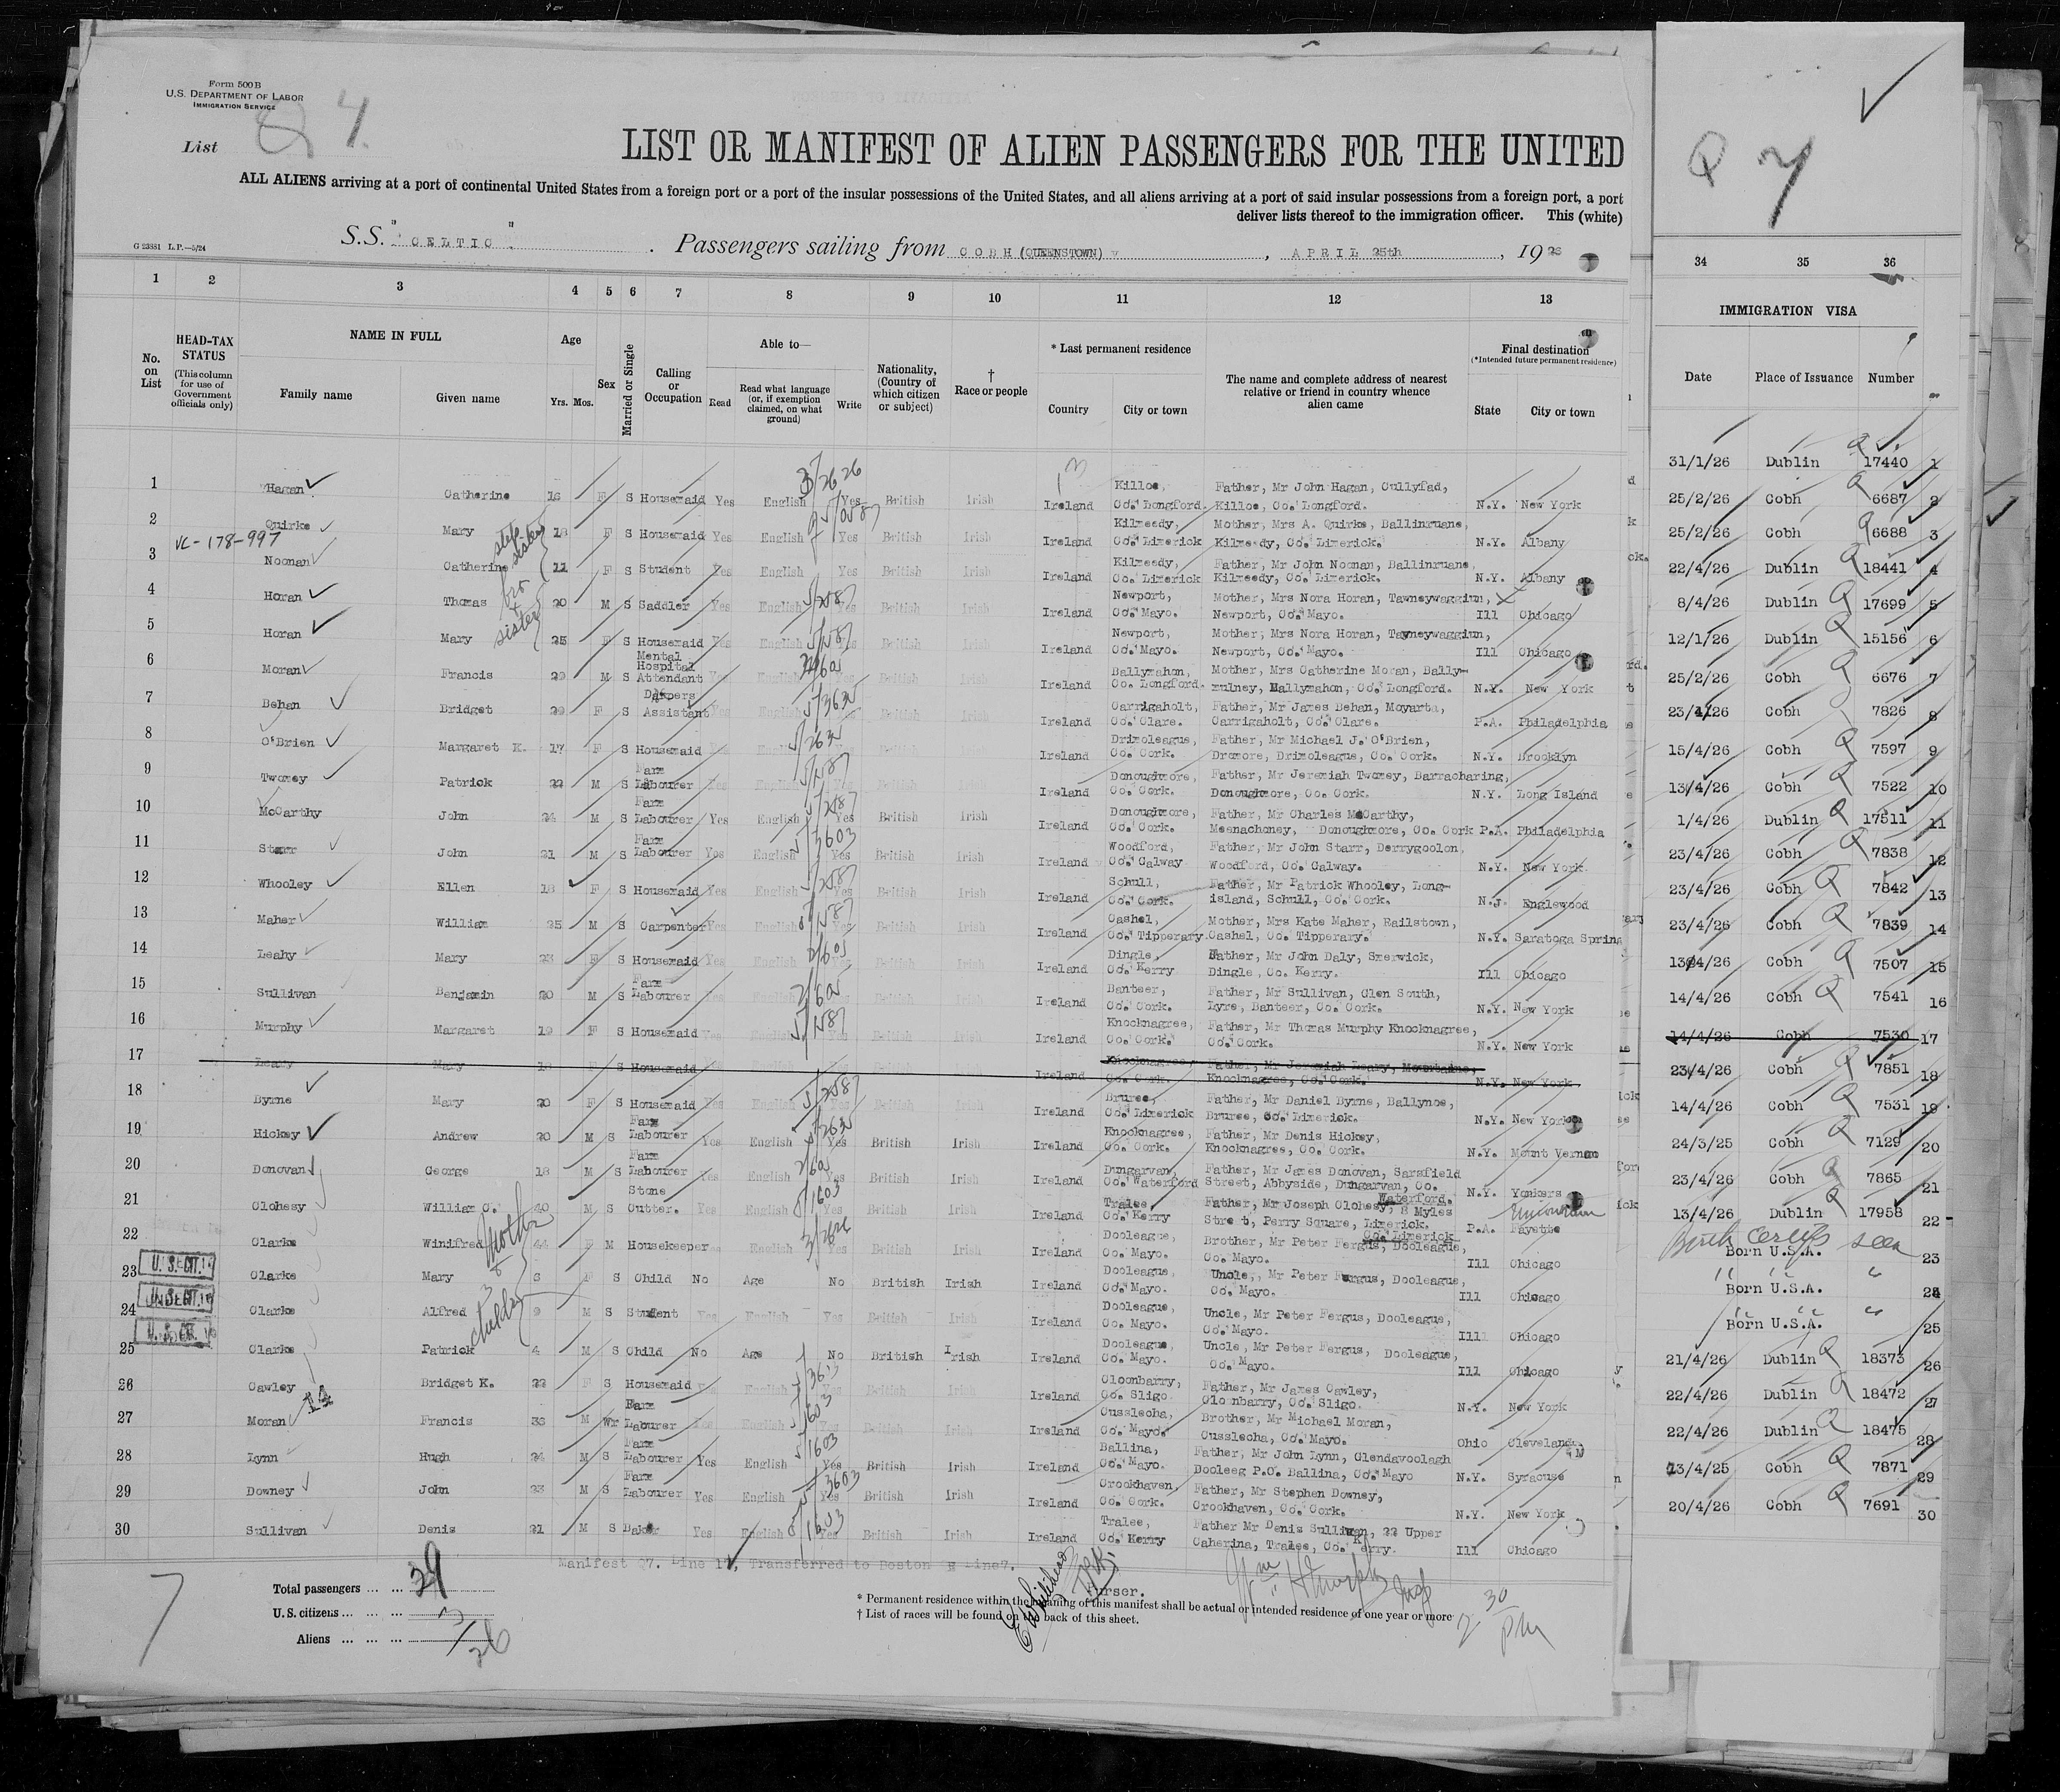 Form 500 B
U.S. DEPARTMENT OF LABOR
IMMIGRATION SERVICE
List Q 7.
LIST OR MANIFEST OF ALIEN PASSENGERS FOR THE UNITED
ALL ALIENS arriving at a port of continental United States from a foreign port or a port of the insular possessions of the United States, and all aliens arriving at a port of said insular possessions from a foreign port, a port
deliver lists thereof to the immigration officer. This (white)
G 23881 L.P.—5/24
S.S. "CELTIC". Passengers sailing from COBH (QUEENSTOWN), APRIL 25th, 1926
Q 7
1 2 3 4 5 6 7 8 9 10 11 12 13
34 35 36
No. on List
HEAD-TAX STATUS (This column for use of Government officials only)
NAME IN FULL
Family name Given name
Age
Yrs. Mos.
Sex
Married or Single
Calling or Occupation
Able to—
Read
Read what language (or, if exemption claimed, on what ground)
Write
Nationality, (Country of which citizen or subject)
† Race or people
* Last permanent residence
Country City or town
The name and complete address of nearest relative or friend in country whence alien came
Final destination
(*Intended future permanent residence)
State City or town
IMMIGRATION VISA
Date Place of Issuance Number
1 Hagan Catherine 16 F S Housemaid Yes English Yes British Irish Ireland Killoe, Co. Longford. Father, Mr John Hagan, Cullyfad, Killoe, Co. Longford. N.Y. New York
2 Quirke Mary 18 F S Housemaid Yes English Yes British Irish Ireland Kilmeedy, Co. Limerick Mother, Mrs A. Quirke, Ballinruane, Kilmeedy, Co. Limerick. N.Y. Albany
VC-178-997
step sisters
3 Noonan Catherine 11 F S Student Yes English Yes British Irish Ireland Kilmeedy, Co. Limerick Father, Mr John Noonan, Ballinruane, Kilmeedy, Co. Limerick. N.Y. Albany
bro + sister
4 Horan Thomas 20 M S Saddler Yes English Yes British Irish Ireland Newport, Co. Mayo. Mother, Mrs Nora Horan, Tawneywaggiun, Newport, Co. Mayo. Ill Chicago
5 Horan Mary 25 F S Housemaid Yes English Yes British Irish Ireland Newport, Co. Mayo. Mother, Mrs Nora Horan, Tawneywaggiun, Newport, Co. Mayo. Ill Chicago
6 Moran Francis 29 M S Mental Hospital Attendant Yes English Yes British Irish Ireland Ballymahon, Co. Longford. Mother, Mrs Catherine Moran, Ballymulney, Ballymahon, Co. Longford. N.Y. New York
7 Behan Bridget 29 F S Drapers Assistant Yes English Yes British Irish Ireland Carrigaholt, Co. Clare. Father, Mr James Behan, Moyarta, Carrigaholt, Co. Clare. P.A. Philadelphia
8 O'Brien Margaret K. 17 F S Housemaid Yes English Yes British Irish Ireland Drimoleague, Co. Cork. Father, Mr Michael J. O'Brien, Dromore, Drimoleague, Co. Cork. N.Y. Brooklyn
9 Twomey Patrick 22 M S Farm Labourer Yes English Yes British Irish Ireland Donoughmore, Co. Cork. Father, Mr Jeremiah Twomey, Barracharing, Donoughmore, Co. Cork. N.Y. Long Island
10 McCarthy John 24 M S Farm Labourer Yes English Yes British Irish Ireland Donoughmore, Co. Cork. Father, Mr Charles McCarthy, Meenachoney, Donoughmore, Co. Cork P.A. Philadelphia
11 Starr John 21 M S Farm Labourer Yes English Yes British Irish Ireland Woodford, Co. Galway Father, Mr John Starr, Derrygoolon, Woodford, Co. Galway. N.Y. New York
12 Whooley Ellen 18 F S Housemaid Yes English Yes British Irish Ireland Schull, Co. Cork. Father, Mr Patrick Whooley, Long-island, Schull, Co. Cork. N.J. Englewood
13 Maher William 25 M S Carpenter Yes English Yes British Irish Ireland Cashel, Co. Tipperary. Mother, Mrs Kate Maher, Railstown, Cashel, Co. Tipperary. N.Y. Saratoga Spring
14 Leahy Mary 23 F S Housemaid Yes English Yes British Irish Ireland Dingle, Co. Kerry Father, Mr John Daly, Smerwick, Dingle, Co. Kerry. Ill Chicago
15 Sullivan Benjamin 20 M S Farm Labourer Yes English Yes British Irish Ireland Banteer, Co. Cork. Father, Mr Sullivan, Glen South, Lyre, Banteer, Co. Cork. N.Y. New York
16 Murphy Margaret 19 F S Housemaid Yes English Yes British Irish Ireland Knocknagree, Co. Cork. Father, Mr Thomas Murphy Knocknagree, Co. Cork. N.Y. New York
17 Leary Mary F S Housemaid Ireland Knocknagree, Co. Cork. Father, Mr Jeremiah Leary, Mountaine, Knocknagree, Co. Cork. N.Y. New York
18 Byrne Mary 20 F S Housemaid Yes English Yes British Irish Ireland Bruree, Co. Limerick Father, Mr Daniel Byrne, Ballynoe, Bruree, Co. Limerick. N.Y. New York
19 Hickey Andrew 20 M S Farm Labourer Yes English Yes British Irish Ireland Knocknagree, Co. Cork. Father, Mr Denis Hickey, Knocknagree, Co. Cork. N.Y. Mount Vernon
20 Donovan George 18 M S Farm Labourer Yes English Yes British Irish Ireland Dungarvan, Co. Waterford Father, Mr James Donovan, Sarsfield Street, Abbyside, Dungarvan, Co. Waterford. N.Y. Yonkers
21 Clohesy William C. 40 M S Stone Cutter. Yes English Yes British Irish Ireland Tralee, Co. Kerry Father, Mr Joseph Clohesy, 8 Myles Street, Perry Square, Limerick. Co. Limerick P.A. Fayette
22 Clarke Winifred 44 F M Housekeeper Yes English Yes British Irish Ireland Dooleague, Co. Mayo. Brother, Mr Peter Fergus, Dooleague, Co. Mayo. Ill Chicago
Mother & 3 children
U.S. CIT.
23 Clarke Mary F S Child No Age No British Irish Ireland Dooleague, Co. Mayo. Uncle, Mr Peter Fergus, Dooleague, Co. Mayo. Ill Chicago
U.S. CIT.
24 Clarke Alfred 9 M S Student Yes English Yes British Irish Ireland Dooleague, Co. Mayo. Uncle, Mr Peter Fergus, Dooleague, Co. Mayo. Ill Chicago
U.S. CIT.
25 Clarke Patrick 4 M S Child No Age No British Irish Ireland Dooleague, Co. Mayo. Uncle, Mr Peter Fergus, Dooleague, Co. Mayo. Ill Chicago
26 Cawley Bridget K. 22 F S Housemaid Yes English Yes British Irish Ireland Cloonbarry, Co. Sligo Father, Mr James Cawley, Cloonbarry, Co. Sligo. N.Y. New York
27 Moran 14 Francis 33 M Wr Farm Labourer Yes English Yes British Irish Ireland Cusslecha, Co. Mayo. Brother, Mr Michael Moran, Cusslecha, Co. Mayo. Ohio Cleveland
28 Lynn Hugh 24 M S Farm Labourer Yes English Yes British Irish Ireland Ballina, Co. Mayo. Father, Mr John Lynn, Glendavoolagh Dooleeg P.O. Ballina, Co. Mayo N.Y. Syracuse
29 Downey John 23 M S Farm Labourer Yes English Yes British Irish Ireland Crookhaven, Co. Cork. Father, Mr Stephen Downey, Crookhaven, Co. Cork. N.Y. New York
30 Sullivan Denis 21 M S Baker Yes English Yes British Irish Ireland Tralee, Co. Kerry Father Mr Denis Sullivan, 22 Upper Caherina, Tralee, Co. Kerry. Ill Chicago
31/1/26 Dublin Q 17440 1
25/2/26 Cobh Q 6687 2
25/2/26 Cobh Q 6688 3
22/4/26 Dublin Q 18441 4
8/4/26 Dublin Q 17699 5
12/1/26 Dublin Q 15156 6
25/2/26 Cobh Q 6676 7
23/4/26 Cobh 7826 8
15/4/26 Cobh Q 7597 9
13/4/26 Cobh Q 7522 10
1/4/26 Dublin Q 17511 11
23/4/26 Cobh Q 7838 12
23/4/26 Cobh Q 7842 13
23/4/26 Cobh Q 7839 14
13/4/26 Cobh Q 7507 15
14/4/26 Cobh Q 7541 16
14/4/26 Cobh 7530 17
23/4/26 Cobh Q 7851 18
14/4/26 Cobh Q 7531 19
24/3/25 Cobh Q 7129 20
23/4/26 Cobh Q 7865 21
13/4/26 Dublin Q 17958 22
Birth Certifs seen
Born U.S.A. 23
" " "
Born U.S.A. 24
" " "
Born U.S.A. 25
21/4/26 Dublin Q 18373 26
22/4/26 Dublin Q 18472 27
22/4/26 Dublin Q 18475 28
23/4/25 Cobh Q 7871 29
20/4/26 Cobh Q 7691 30
Manifest Q7. Line 17, Transferred to Boston Line7.
Total passengers ... ... 29
U.S. citizens ... ... ... 3
Aliens ... ... ... 26
7
Purser.
* Permanent residence within the meaning of this manifest shall be actual or intended residence of one year or more
† List of races will be found on the back of this sheet.
2 30 PM